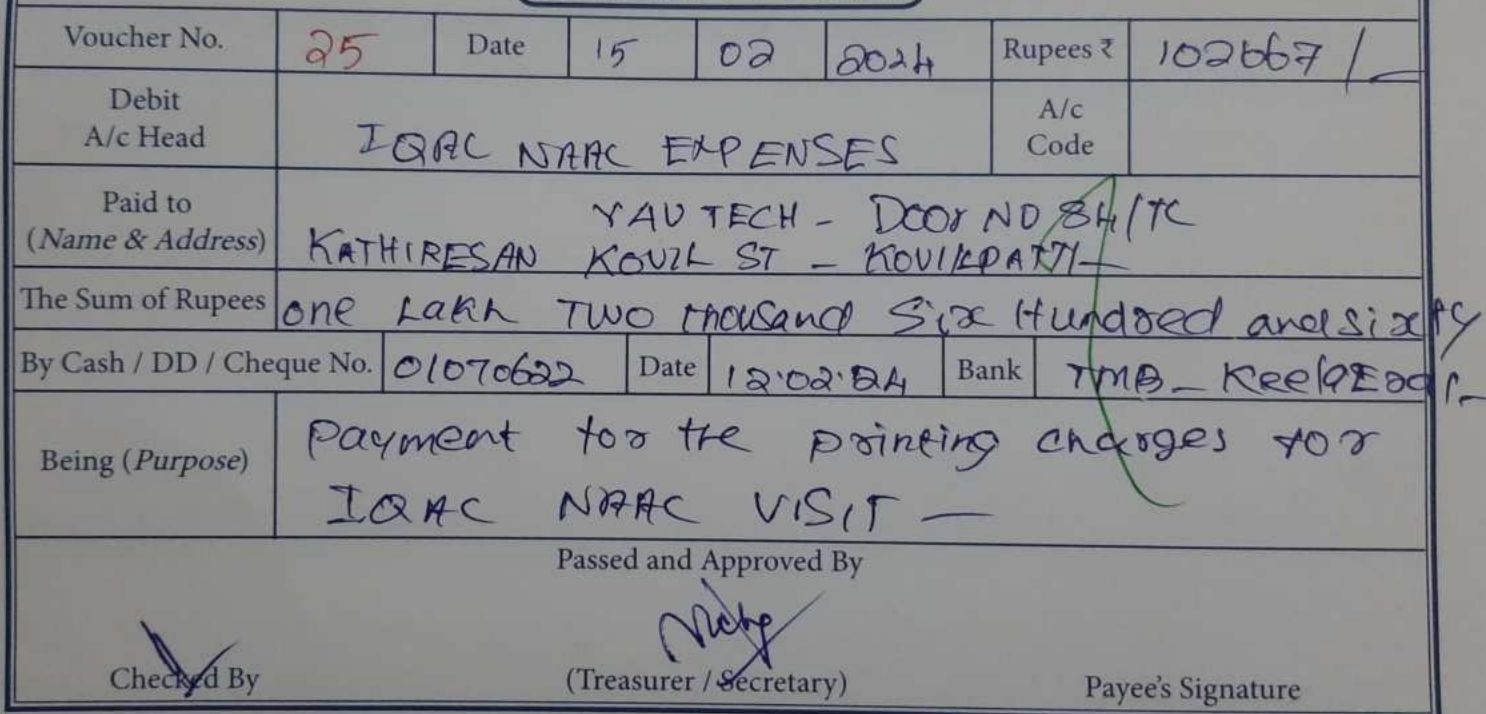 Voucher No. 25 Date 15 02 2024 Rupees ₹ 102667/-
Debit A/c Head IQAC NAAC EXPENSES A/c Code
Paid to YAV TECH - Door NO 84/TC
(Name & Address) KATHIRESAN KOVIL ST - KOVILPATTI-
The Sum of Rupees one Lakh Two thousand Six Hundred and sixty
By Cash / DD / Cheque No. 01070622 Date 12.02.24 Bank TMB-
Being (Purpose) Payment for the printing charges for
IQAC NAAC VISIT -
Passed and Approved By
Checked By (Treasurer / Secretary) Payee's Signature